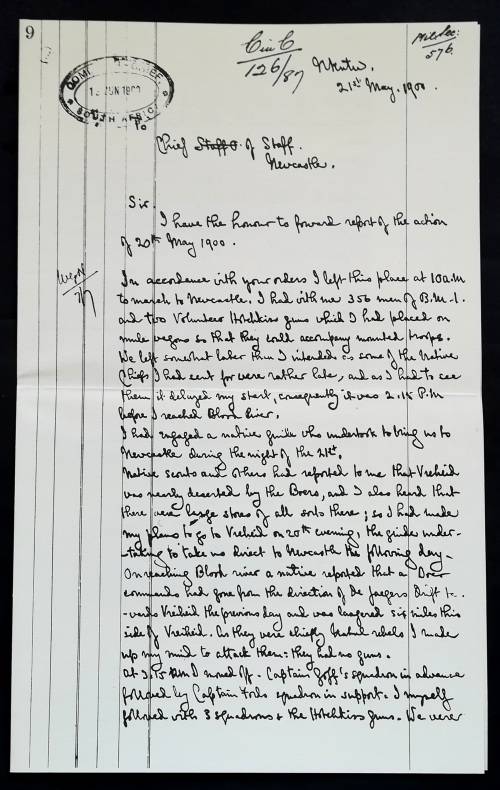 9
C in C
126/87
Nkutu.
21st May. 1900.
13 JUN 1900
SOUTH AFRICA
Chief Staff O. of Staff.
Newcastle.
Sir.
I have the honour to forward report of the action
of 20th May 1900.
In accordance with your orders I left this place at 10 a.m
to march to Newcastle. I had with me 356 men of B.M.I.
and two Volunteer Hotchkiss guns which I had placed on
mule wagons so that they could accompany mounted troops.
We left somewhat later than I intended as some of the Native
Chiefs I had sent for were rather late, and as I had to see
them it delayed my start, consequently it was 2.15 P.M
before I reached Blood River.
I had engaged a native guide who undertook to bring us to
Newcastle during the night of the 21st.
Native scouts and others had reported to me that Vreheid
was nearly deserted by the Boers, and I also heard that
there were large stores of all sorts there; so I had made
my plans to go to Vreheid on 20th evening, the guide under-
-taking to take me direct to Newcastle the following day-
On reaching Blood river a native reported that a Boer
commando had gone from the direction of De Jaegers Drift to-
-wards Vreiheid the previous day and was laagered six miles this
side of Vreiheid. As they were chiefly Natal rebels I made
up my mind to attack them: they had no guns.
At 3.15 P.M I moved off. Captain Goff's squadron in advance
followed by Captain squadron in support. I myself
followed with 3 squadrons & the Hotchkiss guns. We were